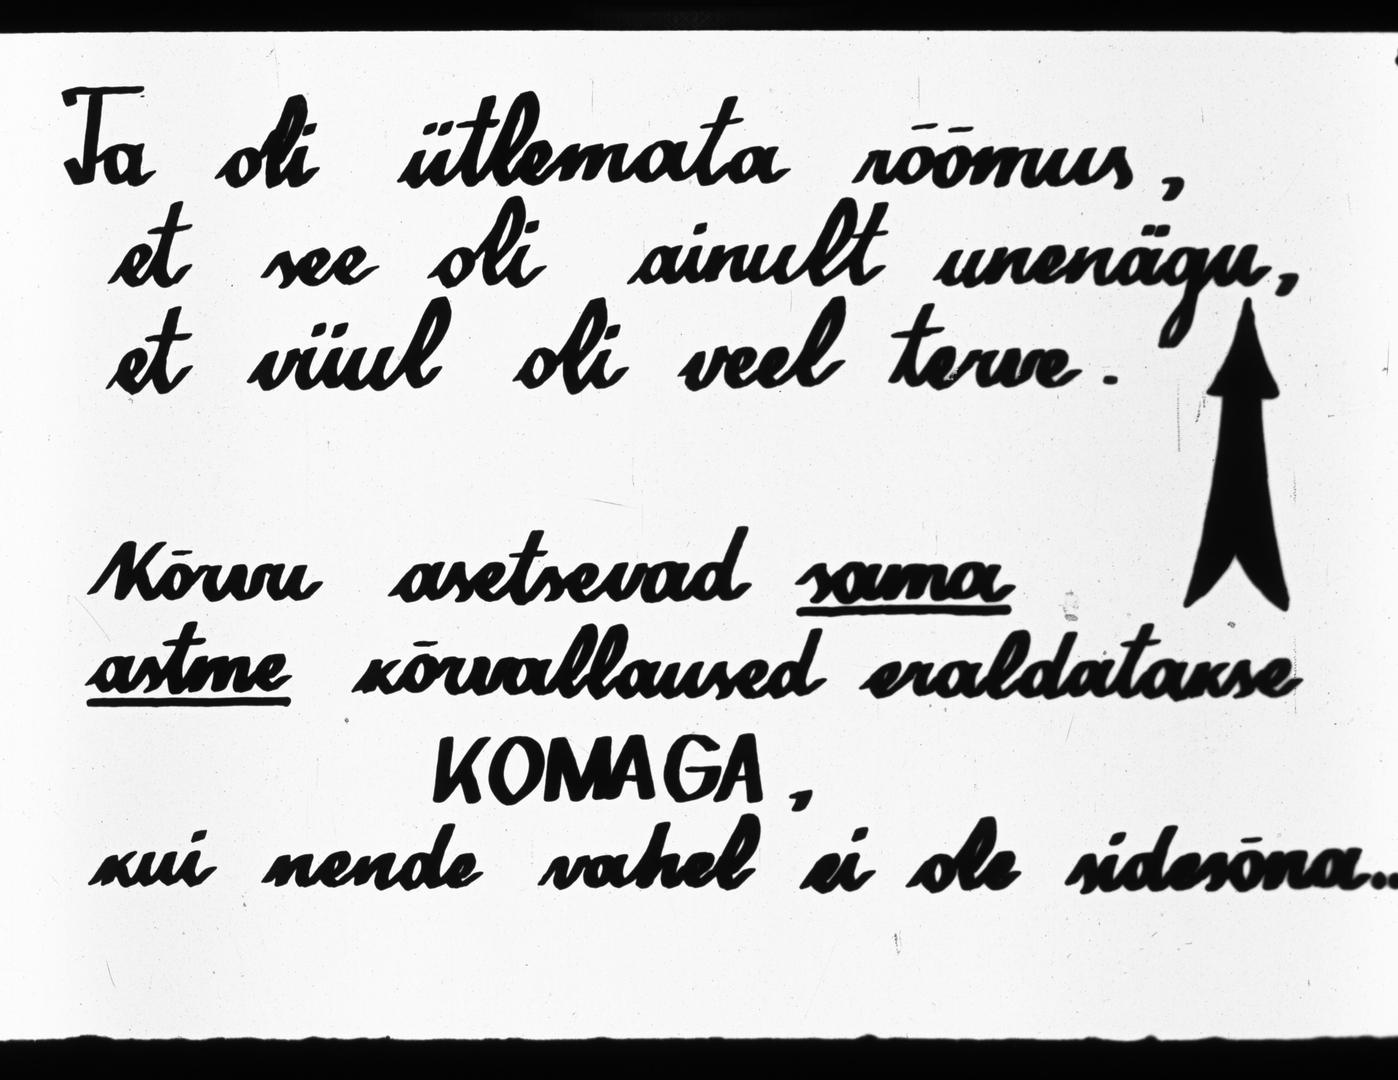 Ta oli ütlemata rõõmus,
et see oli ainult unenägu,
et viiul oli veel terve.
Kõrvu asetsevad sama
astme kõrvallaused eraldatakse
KOMAGA,
kui nende vahel ei ole sidesõna...